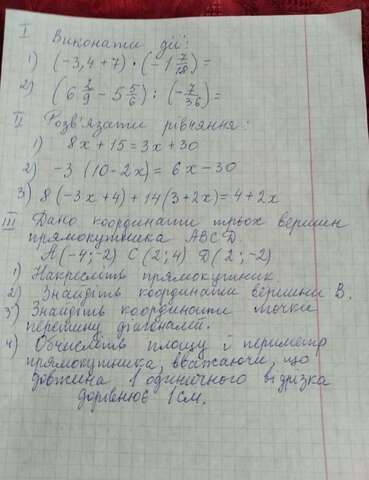 I Виконати дії:
1) (-3,4 + 7) · (-1 7/18) =
2) (6 2/9 - 5 5/6) : (-7/36) =
II Розв'язати рівняння:
1) 8x + 15 = 3x + 30
2) -3 (10 - 2x) = 6x - 30
3) 8 (-3x + 4) + 14 (3 + 2x) = 4 + 2x
III Дано координати трьох вершин
прямокутника ABCD.
A (-4; -2) C (2; 4) D (2; -2)
1) Накресліть прямокутник
2) Знайдіть координати вершини B.
3) Знайдіть координати точки
перетину діагоналей.
4) Обчисліть площу і периметр
прямокутника, вважаючи, що
довжина 1 одиничного відрізка
дорівнює 1 см.